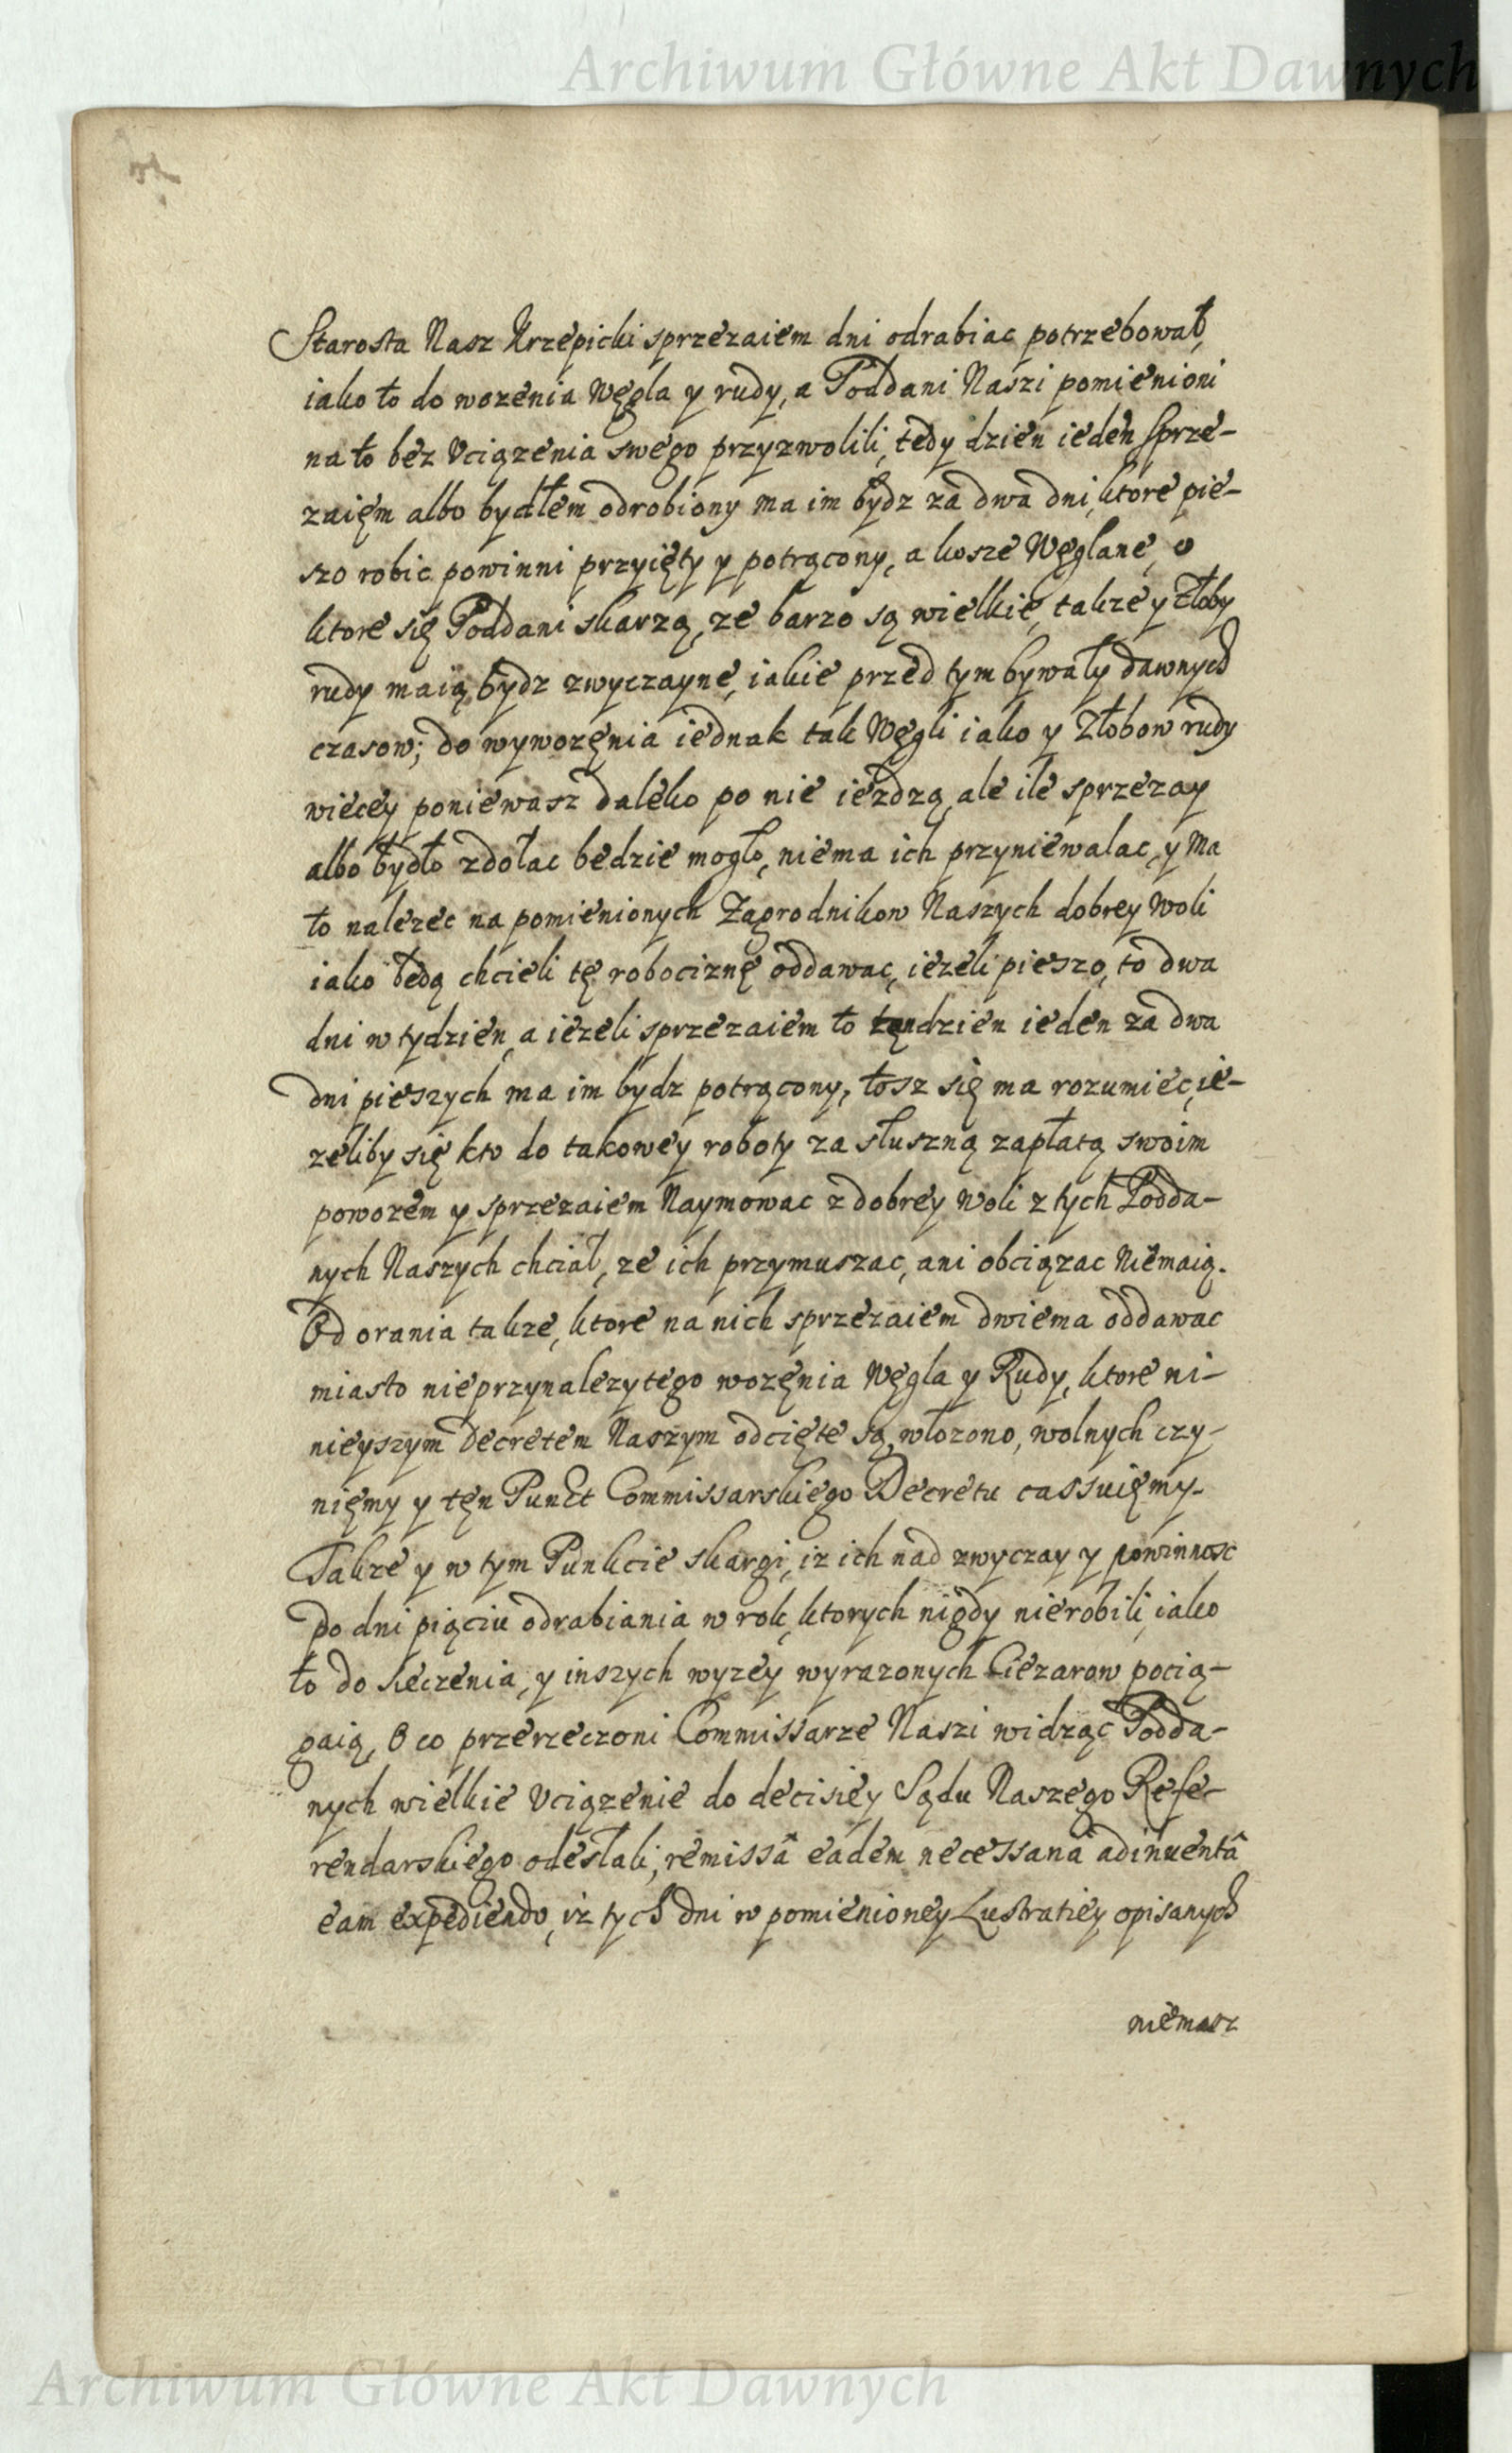 Archiwum Główne Akt Dawnych
Starosta Nasz Krzepicki sprzezaiem dni odrabiac potrzebował,
iako to do wozenia Węgla y rudy, a Poddani Naszi pomienioni
na to bez Uciązenia swego przyzwolili, tedy dzien ieden sprze-
zaięm albo bydłem odrobiony ma im bydz za dwa dni, ktore pie-
szo robic powinni przyięty y potrącony, a kosze Węglane, o
ktore się Poddani skarzą, ze barzo są wielkie, takze y Złoby
rudy maią bydz zwyczayne, iakie przed tym bywały dawnych
czasow; do wywozęnia iednak tak Węgli iako y Złobow rudy
wiecey poniewasz daleko po nie iezdzą, ale ile sprzezay
albo bydło zdołac bedzie mogło, niema ich przyniewalac, y ma
to nalezec na pomienionych Zagrodnikow Naszych dobrey woli
iako będą chcieli tę robociznę oddawac, iezeli pieszo, to dwa
dni w tydzien, a iezeli sprzezaiem to tęn dzien ieden za dwa
dni pieszych ma im bydz potrącony, tosz się ma rozumiec, ie-
zeliby się kto do takowey roboty za słuszną zapłatą swoim
powozem y sprzezaiem Naymowac z dobrey woli z tych Podda-
nych Naszych chciał, ze ich przymuszac, ani obciązac niemaią.
Od orania takze, ktore na nich sprzezaiem dwiema oddawac
miasto nieprzynalezytego wozęnia Węgla y Rudy, ktore ni-
nieyszym Decretem Naszym odcięte są, włozono, wolnych czy-
nięmy y tęn Punct Commissarskiego Decretu cassuięmy.
Takze y w tym Punkcie skargi, iz ich nad zwyczay y powinnosc
do dni piąciu odrabiania w rok, ktorych nigdy nierobili, iako
to do sieczenia, y inszych wyzey wyrazonych Ciezarow pocią-
gaią, O co przerzeczoni Commissarze Naszi widząc Podda-
nych wielkie Uciązenie do decisiey Sądu Naszego Refe-
rendarskiego odesłali, remissâ eadem necessana adinuentâ
eam expediendo, iz tych dni w pomienioney Lustratiey opisanych
niemasz
Archiwum Główne Akt Dawnych